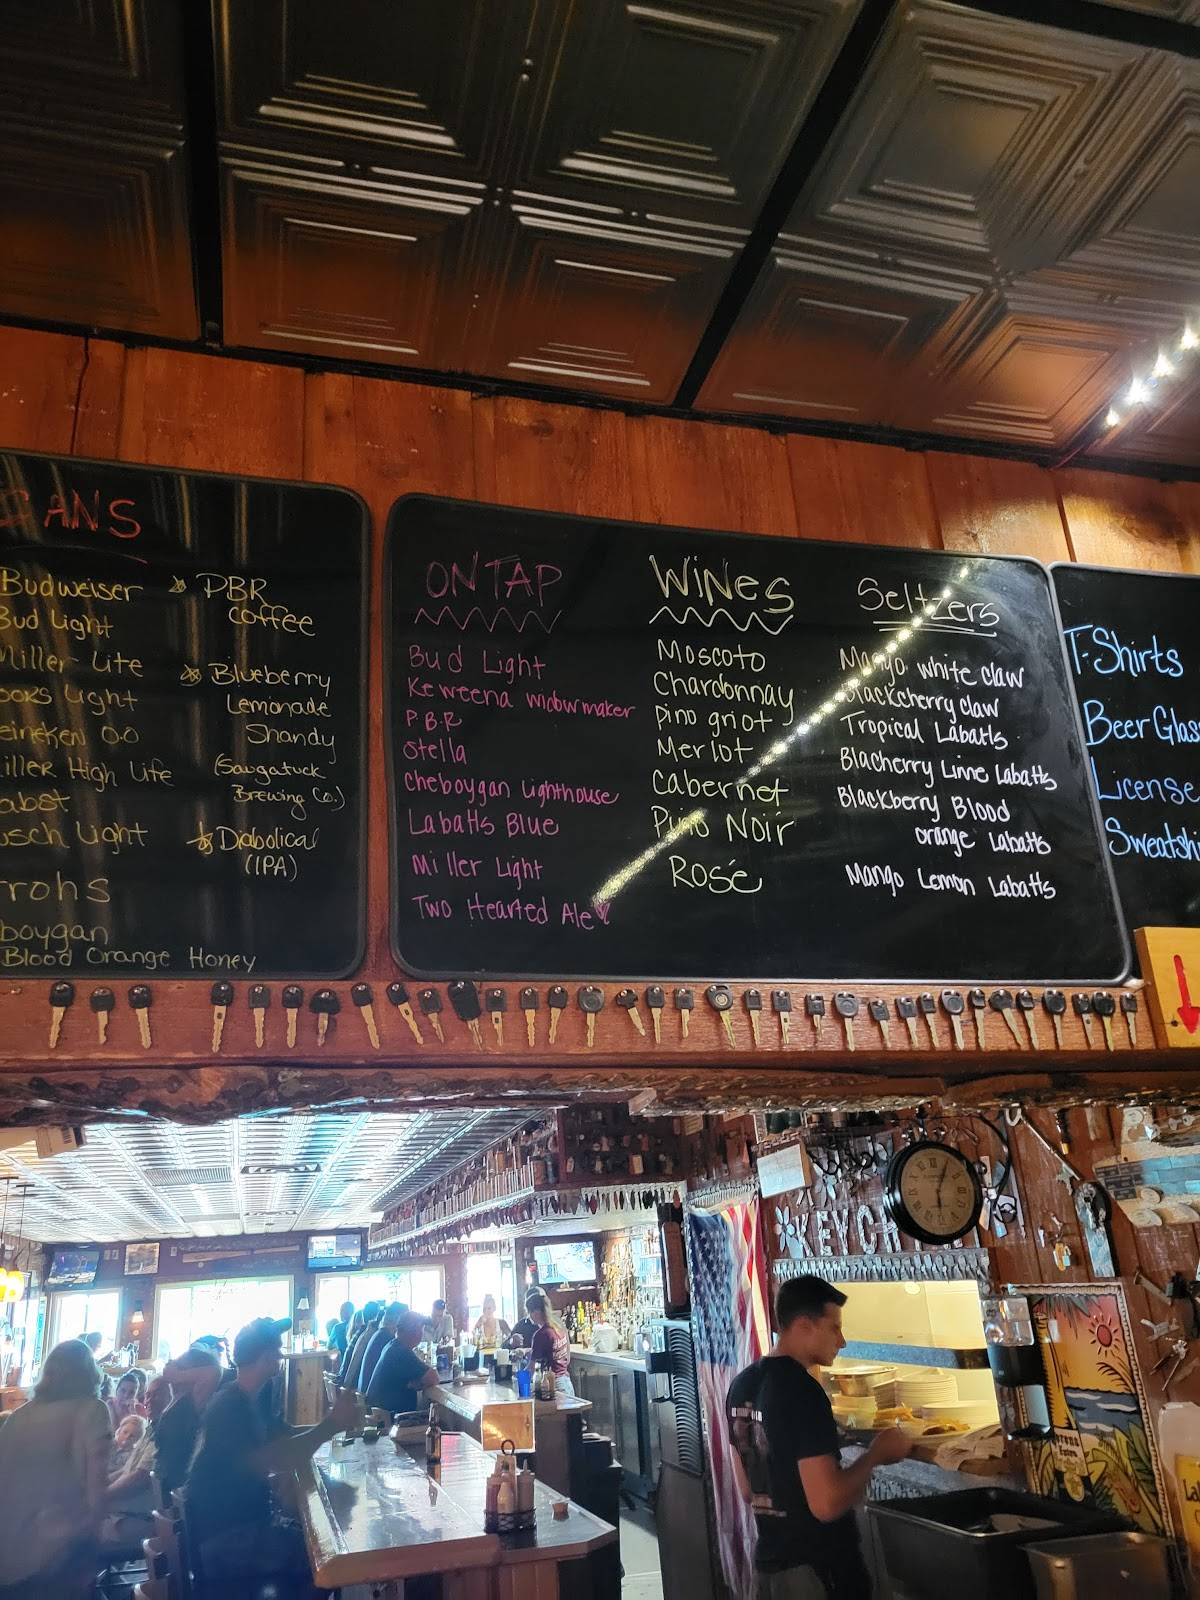 CANS
Budweiser
Bud Light
Miller Lite
Light
Heineken 0.0
Miller High Life
Pabst
Busch Light
boygan
Blood Orange Honey
PBR
Coffee
Blueberry
Lemonade
Shandy
(Saugatuck
Brewing Co.)
Diabolical
(IPA)
ON TAP
Bud Light
Keweena widowmaker
P.B.R
Stella
Cheboygan Lighthouse
Labatts Blue
Miller Light
Two Hearted Ale
WINES
Moscoto
Chardonnay
Pino griot
Merlot
Cabernet
Pino Noir
Rosé
Seltzers
Mango white claw
Blackcherry claw
Tropical Labatts
Blacherry Lime Labatts
Blackberry Blood
orange Labatts
Mango Lemon Labatts
T-Shirts
Beer Glas
License
Sweatsh
KEYCH